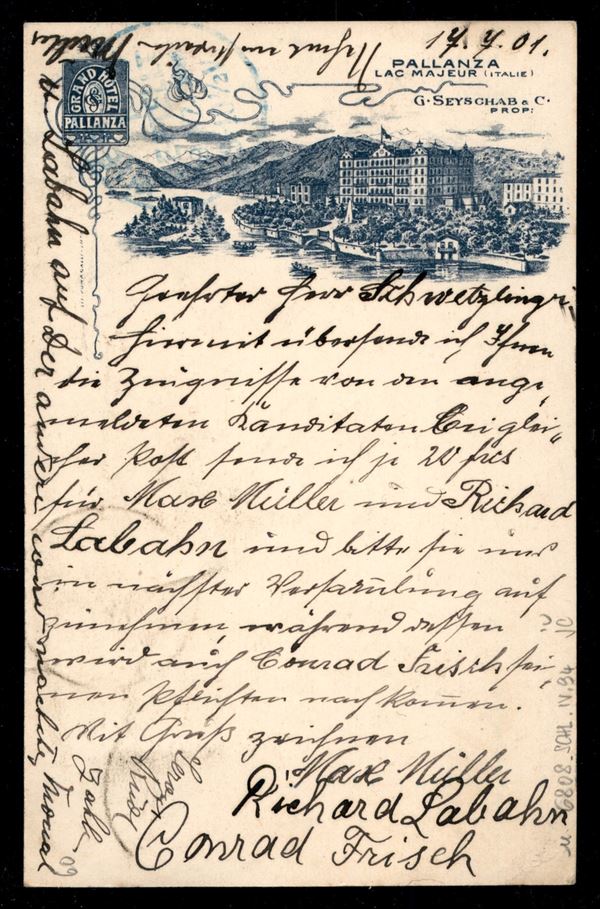 17.7.01.
PALLANZA
LAC MAJEUR (ITALIE)
G. SEYSCHAB & C.
PROP:
GRAND HÔTEL
PALLANZA
Geehrter Herr Schwetzlinger.
hiermit übersende ich Ihnen
die Zeugnisse von den ange,
meldeten Kanditaten bei glei„
cher Post sende ich je 20 frcs
für Max Müller und Richard
Labahn und bitte sie uns
in nächster Versammlung auf
zunehmen, während dessen
wird auch Conrad Frisch sei„
nen Pflichten nachkommen.
Mit Gruß zeichnen
Max Müller
Richard Labahn
Conrad Frisch
Labahn auf der andere wird nächsten Monat